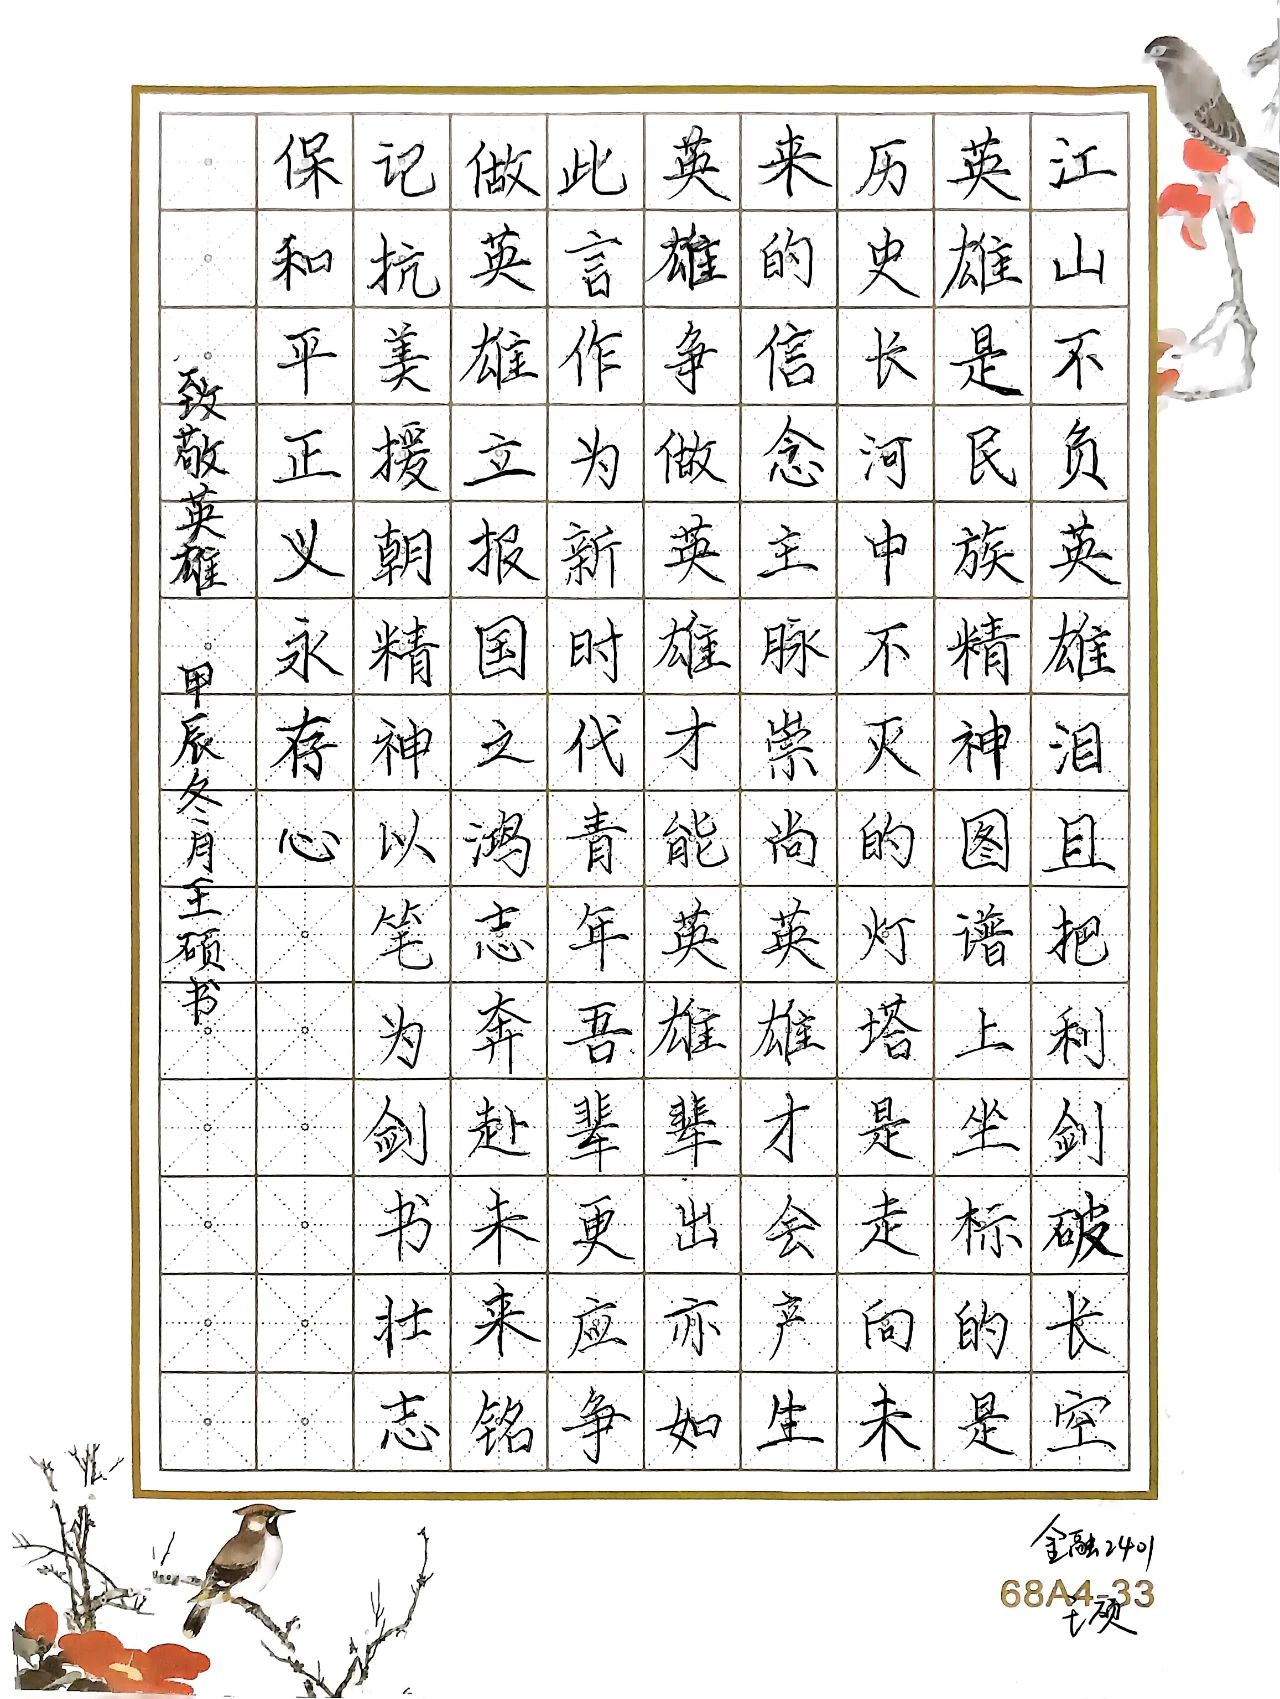 江山不负英雄泪且把利剑破长空
英雄是民族精神图谱上坐标的是
历史长河中不灭的灯塔是走向未
来的信念主脉崇尚英雄才会产生
英雄争做英雄才能英雄辈出亦如
此言作为新时代青年吾辈更应争
做英雄立报国之鸿志奔赴未来铭
记抗美援朝精神以笔为剑书壮志
保和平正义永存心
致敬英雄 甲辰冬月王硕书
金融2401
68A4-33
王硕